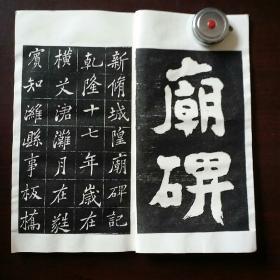 廟碑
新脩城隍廟碑記
乾隆十七年歲在
橫艾涒灘月在蕤
賓知濰縣事板橋